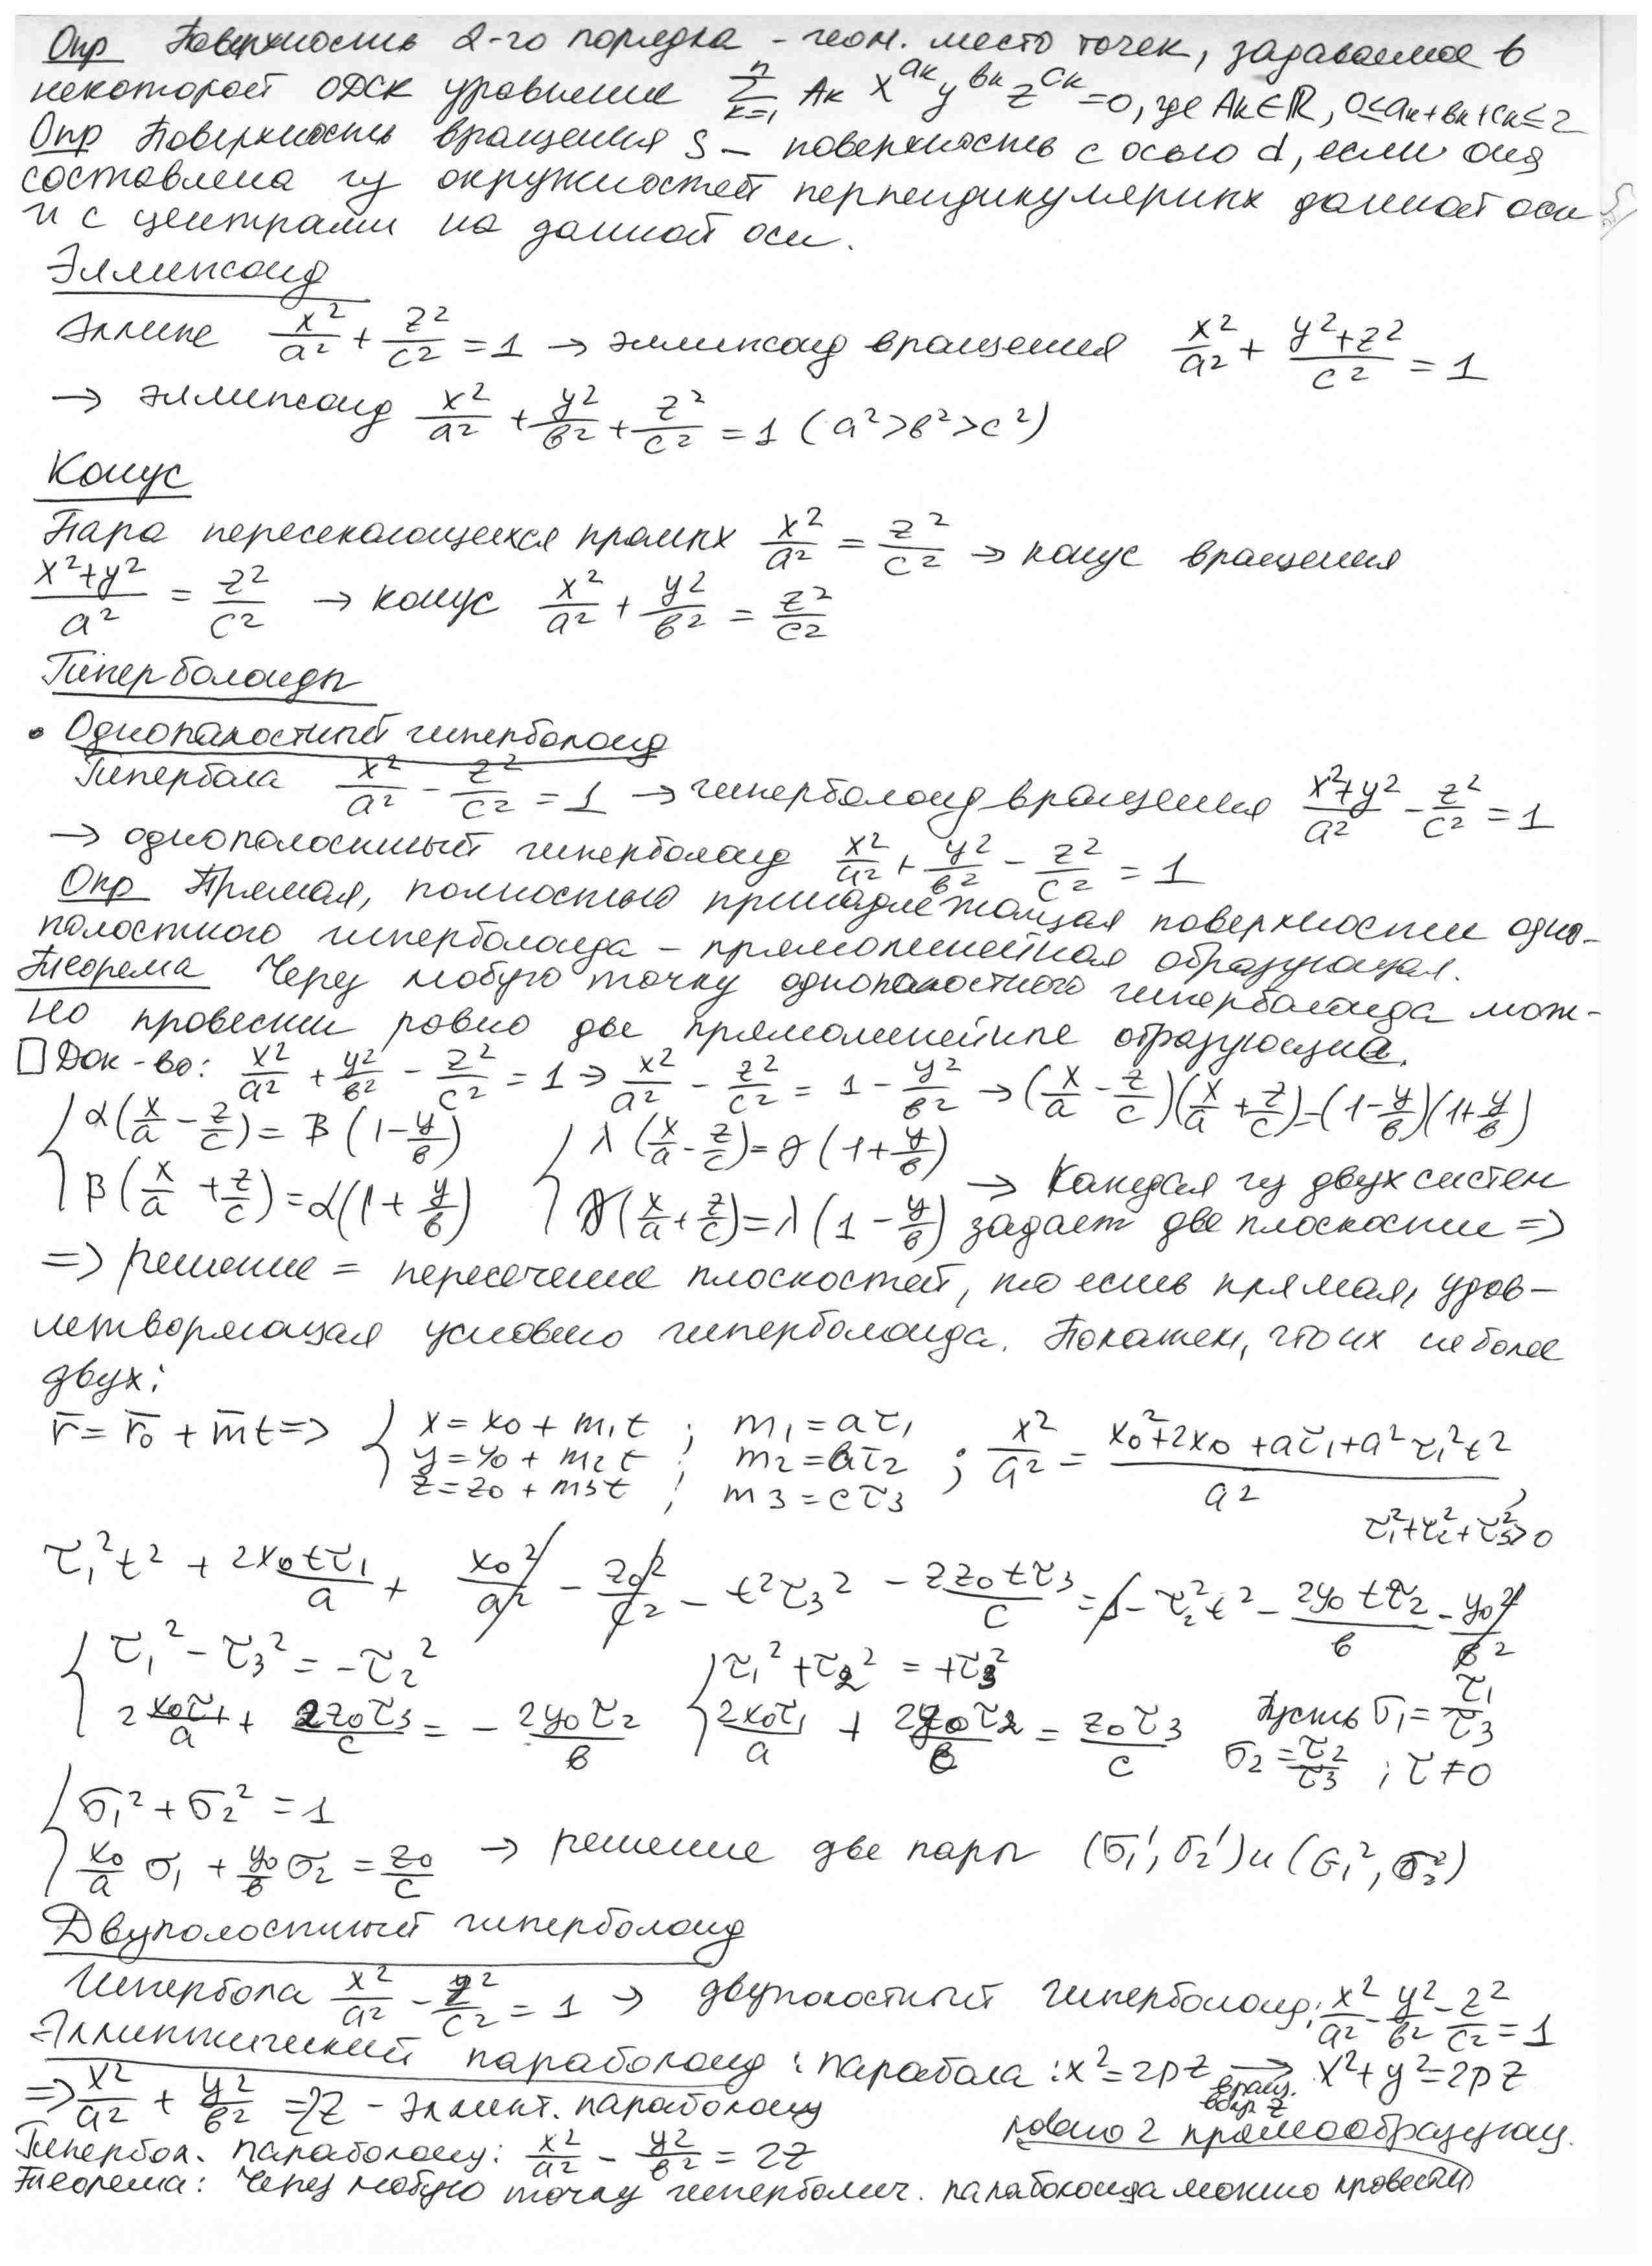 Опр Поверхность 2-го порядка - геом. место точек, задаваемое в
некоторой ОДСК уравнение \sum_{k=1}^{n} A_k x^{a_k} y^{b_k} z^{c_k} = 0, где A_k ∈ ℝ, 0 ≤ a_k + b_k + c_k ≤ 2
Опр Поверхность вращения S – поверхность с осью d, если она
составлена из окружностей перпендикулярных данной оси
и с центрами на данной оси.
Эллипсоид
Эллипс x²/a² + z²/c² = 1 → эллипсоид вращения x²/a² + (y²+z²)/c² = 1
→ эллипсоид x²/a² + y²/b² + z²/c² = 1 (a² > b² > c²)
Конус
Пара пересекающихся прямых x²/a² = z²/c² → конус вращения
(x²+y²)/a² = z²/c² → конус x²/a² + y²/b² = z²/c²
Гиперболоиды
• Однополостный гиперболоид
Гипербола x²/a² - z²/c² = 1 → гиперболоид вращения (x²+y²)/a² - z²/c² = 1
→ однополостный гиперболоид x²/a² + y²/b² - z²/c² = 1
Опр Прямая, полностью принадлежащая поверхности одно-
полостного гиперболоида – прямолинейная образующая.
Теорема Через любую точку однополостного гиперболоида мож-
но провести ровно две прямолинейные образующие.
□ Док-во: x²/a² + y²/b² - z²/c² = 1 → x²/a² - z²/c² = 1 - y²/b² → (x/a - z/c)(x/a + z/c) = (1 - y/b)(1 + y/b)
{ α(x/a - z/c) = β(1 - y/b) { λ(x/a - z/c) = γ(1 + y/b)
β(x/a + z/c) = α(1 + y/b) γ(x/a + z/c) = λ(1 - y/b) → Каждая из двух систем
задает две плоскости =>
=> решение = пересечение плоскостей, то есть прямая, удов-
летворяющая условию гиперболоида. Покажем, что их не более
двух:
r̄ = r̄₀ + m̄t => { x = x₀ + m₁t ; m₁ = aτ₁
y = y₀ + m₂t ; m₂ = bτ₂ ; x²/a² = (x₀² + 2x₀ + aτ₁ + a²τ₁²t²)/a² ,
z = z₀ + m₃t ; m₃ = cτ₃
τ₁² + τ₂² + τ₃² > 0
τ₁²t² + 2x₀tτ₁/a + x₀²/a² - z₀²/c² - t²τ₃² - 2z₀tτ₃/c = 1 - τ₂²t² - 2y₀tτ₂/b - y₀²/b²
{ τ₁² - τ₃² = -τ₂² { τ₁² + τ₂² = +τ₃²
2x₀τ₁/a + 2z₀τ₃/c = - 2y₀τ₂/b 2x₀τ₁/a + 2y₀τ₂/b = z₀τ₃/c Пусть σ₁ = τ₁/τ₃
σ₂ = τ₂/τ₃ ; τ ≠ 0
{ σ₁² + σ₂² = 1
x₀/a σ₁ + y₀/b σ₂ = z₀/c → решение две пары (σ₁', σ₂') и (σ₁², σ₂²)
Двуполостный гиперболоид
Гипербола x²/a² - z²/c² = 1 → двуполостный гиперболоид: x²/a² - y²/b² - z²/c² = 1
Эллиптический параболоид : парабола : x² = 2pz → вращ. вокр z x² + y² = 2pz
=> x²/a² + y²/b² = 2z - эллипт. параболоид
Гипербол. параболоид: x²/a² - y²/b² = 2z
Теорема: Через любую точку гиперболич. параболоида можно провести
ровно 2 прямообразующ.